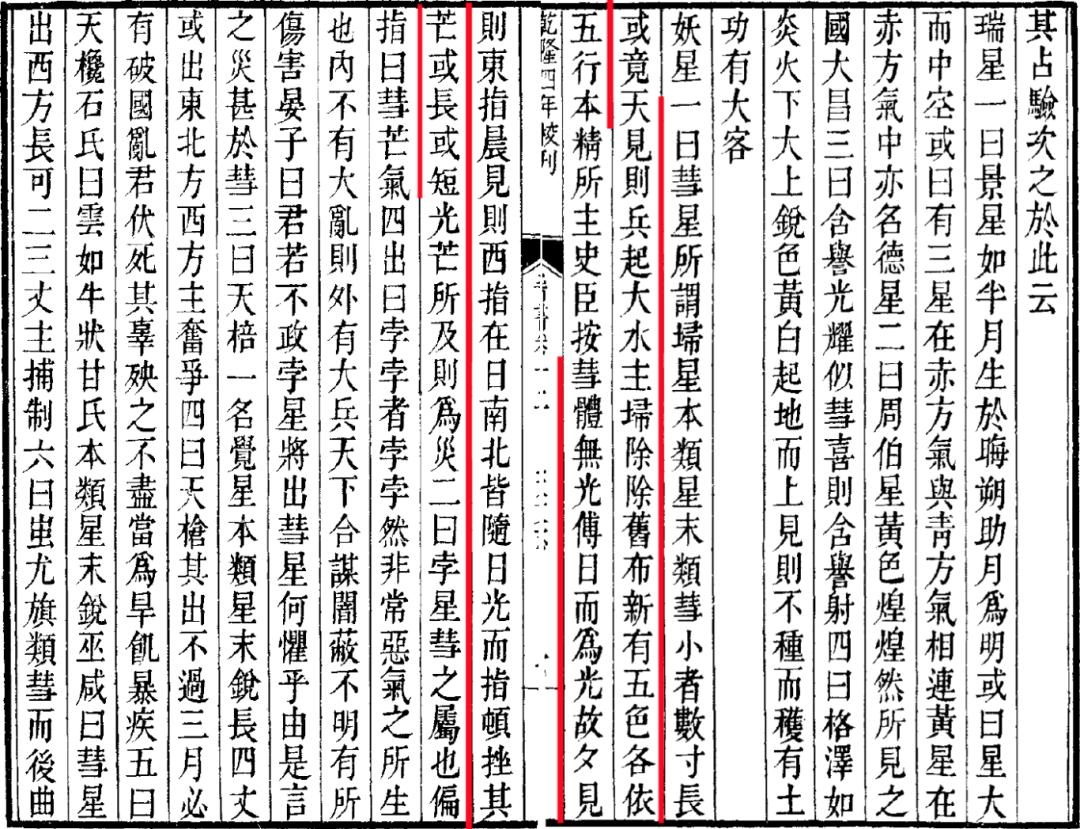 其占驗次之於此云
瑞星一曰景星如半月生於晦朔助月爲明或曰星大
而中空或曰有三星在赤方氣與靑方氣相連黃星在
赤方氣中亦名德星二曰周伯星黃色煌煌然所見之
國大昌三曰含譽光耀似彗喜則含譽射四曰格澤如
炎火下大上銳色黃白起地而上見則不種而穫有土
功有大客
妖星一曰彗星所謂埽星本類星末類彗小者數寸長
或竟天見則兵起大水主埽除除舊布新有五色各依
五行本精所主史臣按彗體無光傅日而爲光故夕見
乾隆四年校刊
則東指晨見則西指在日南北皆隨日光而指頓挫其
芒或長或短光芒所及則爲災二曰孛星彗之屬也偏
指曰彗芒氣四出曰孛孛者孛孛然非常惡氣之所生
也內不有大亂則外有大兵天下合謀闇蔽不明有所
傷害晏子曰君若不政孛星將出彗星何懼乎由是言
之災甚於彗三曰天棓一名覺星本類星末銳長四丈
或出東北方西方主奮爭四曰天槍其出不過三月必
有破國亂君伏死其辜殃之不盡當爲旱飢暴疾五曰
天欃石氏曰雲如牛狀甘氏本類星末銳巫咸曰彗星
出西方長可二三丈主捕制六曰蚩尤旗類彗而後曲